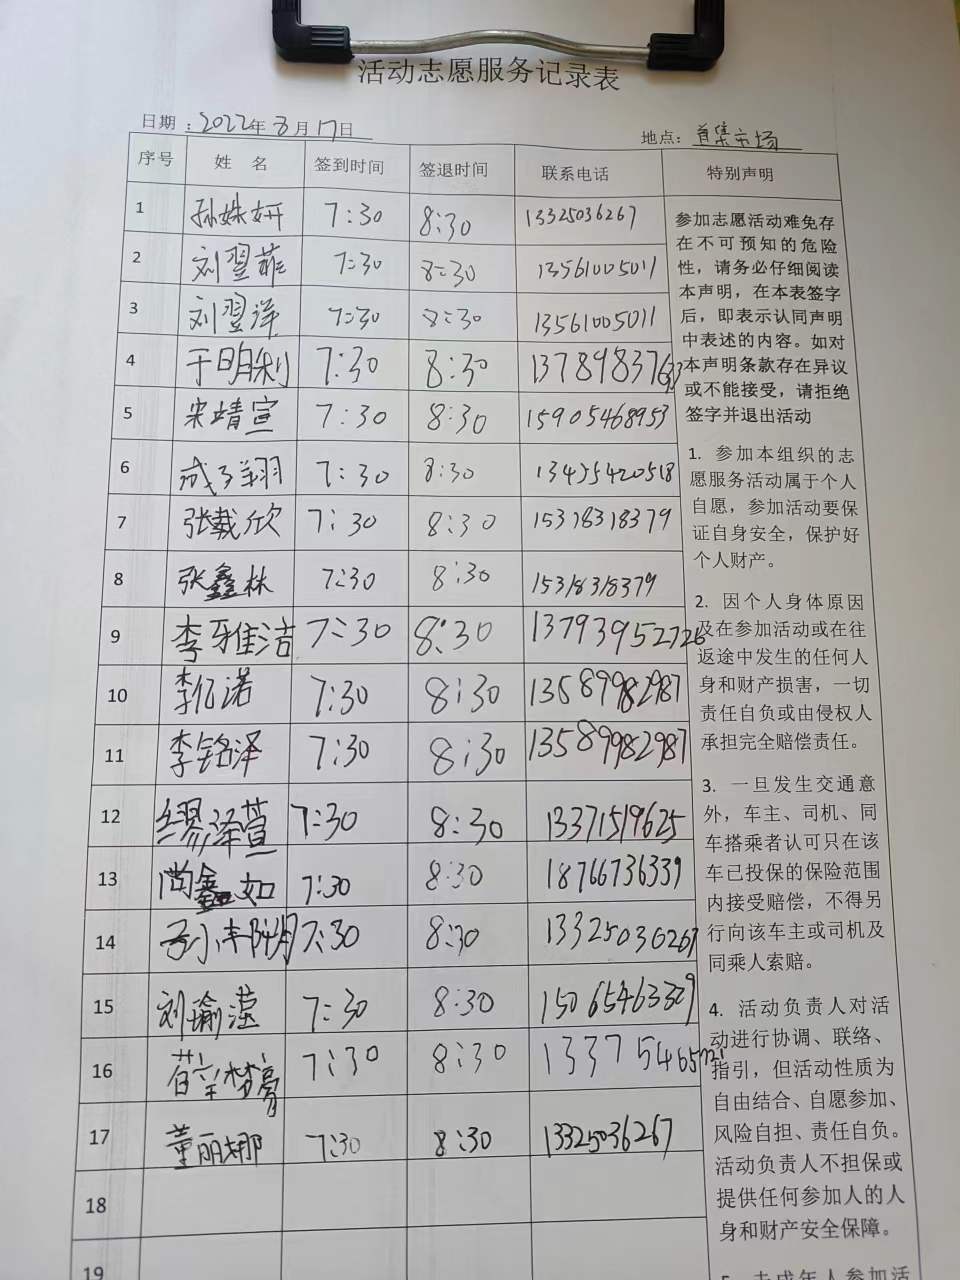 活动志愿服务记录表
日期：2022年8月17日 地点：首集市场
序号 姓 名 签到时间 签退时间 联系电话 特别声明
1 孙姝妍 7:30 8:30 13325036267
2 刘翌菲 7:30 8:30 13561005011
3 刘翌洋 7:30 8:30 13561005011
4 于明利 7:30 8:30 13789837633
5 宋靖宣 7:30 8:30 15905468953
6 成子翔 7:30 8:30 13475420518
7 张载欣 7:30 8:30 15318318379
8 张鑫林 7:30 8:30 15318318379
9 李雅洁 7:30 8:30 13793952726
10 李亿诺 7:30 8:30 13589982987
11 李铭泽 7:30 8:30 13589982987
12 缪泽萱 7:30 8:30 13371519625
13 尚鑫如 7:30 8:30 18766736339
14 7:30 8:30 13325036267
15 刘瑜滢 7:30 8:30 15065463309
16 7:30 8:30
17 董丽娜 7:30 8:30 13325036267
18
19
参加志愿活动难免存
在不可预知的危险
性，请务必仔细阅读
本声明，在本表签字
后，即表示认同声明
中表述的内容。如对
本声明条款存在异议
或不能接受，请拒绝
签字并退出活动
1. 参加本组织的志
愿服务活动属于个人
自愿，参加活动要保
证自身安全，保护好
个人财产。
2. 因个人身体原因
及在参加活动或在往
返途中发生的任何人
身和财产损害，一切
责任自负或由侵权人
承担完全赔偿责任。
3. 一旦发生交通意
外，车主、司机、同
车搭乘者认可只在该
车已投保的保险范围
内接受赔偿，不得另
行向该车主或司机及
同乘人索赔。
4. 活动负责人对活
动进行协调、联络、
指引，但活动性质为
自由结合、自愿参加、
风险自担、责任自负。
活动负责人不担保或
提供任何参加人的人
身和财产安全保障。
5. 未成年人参加活